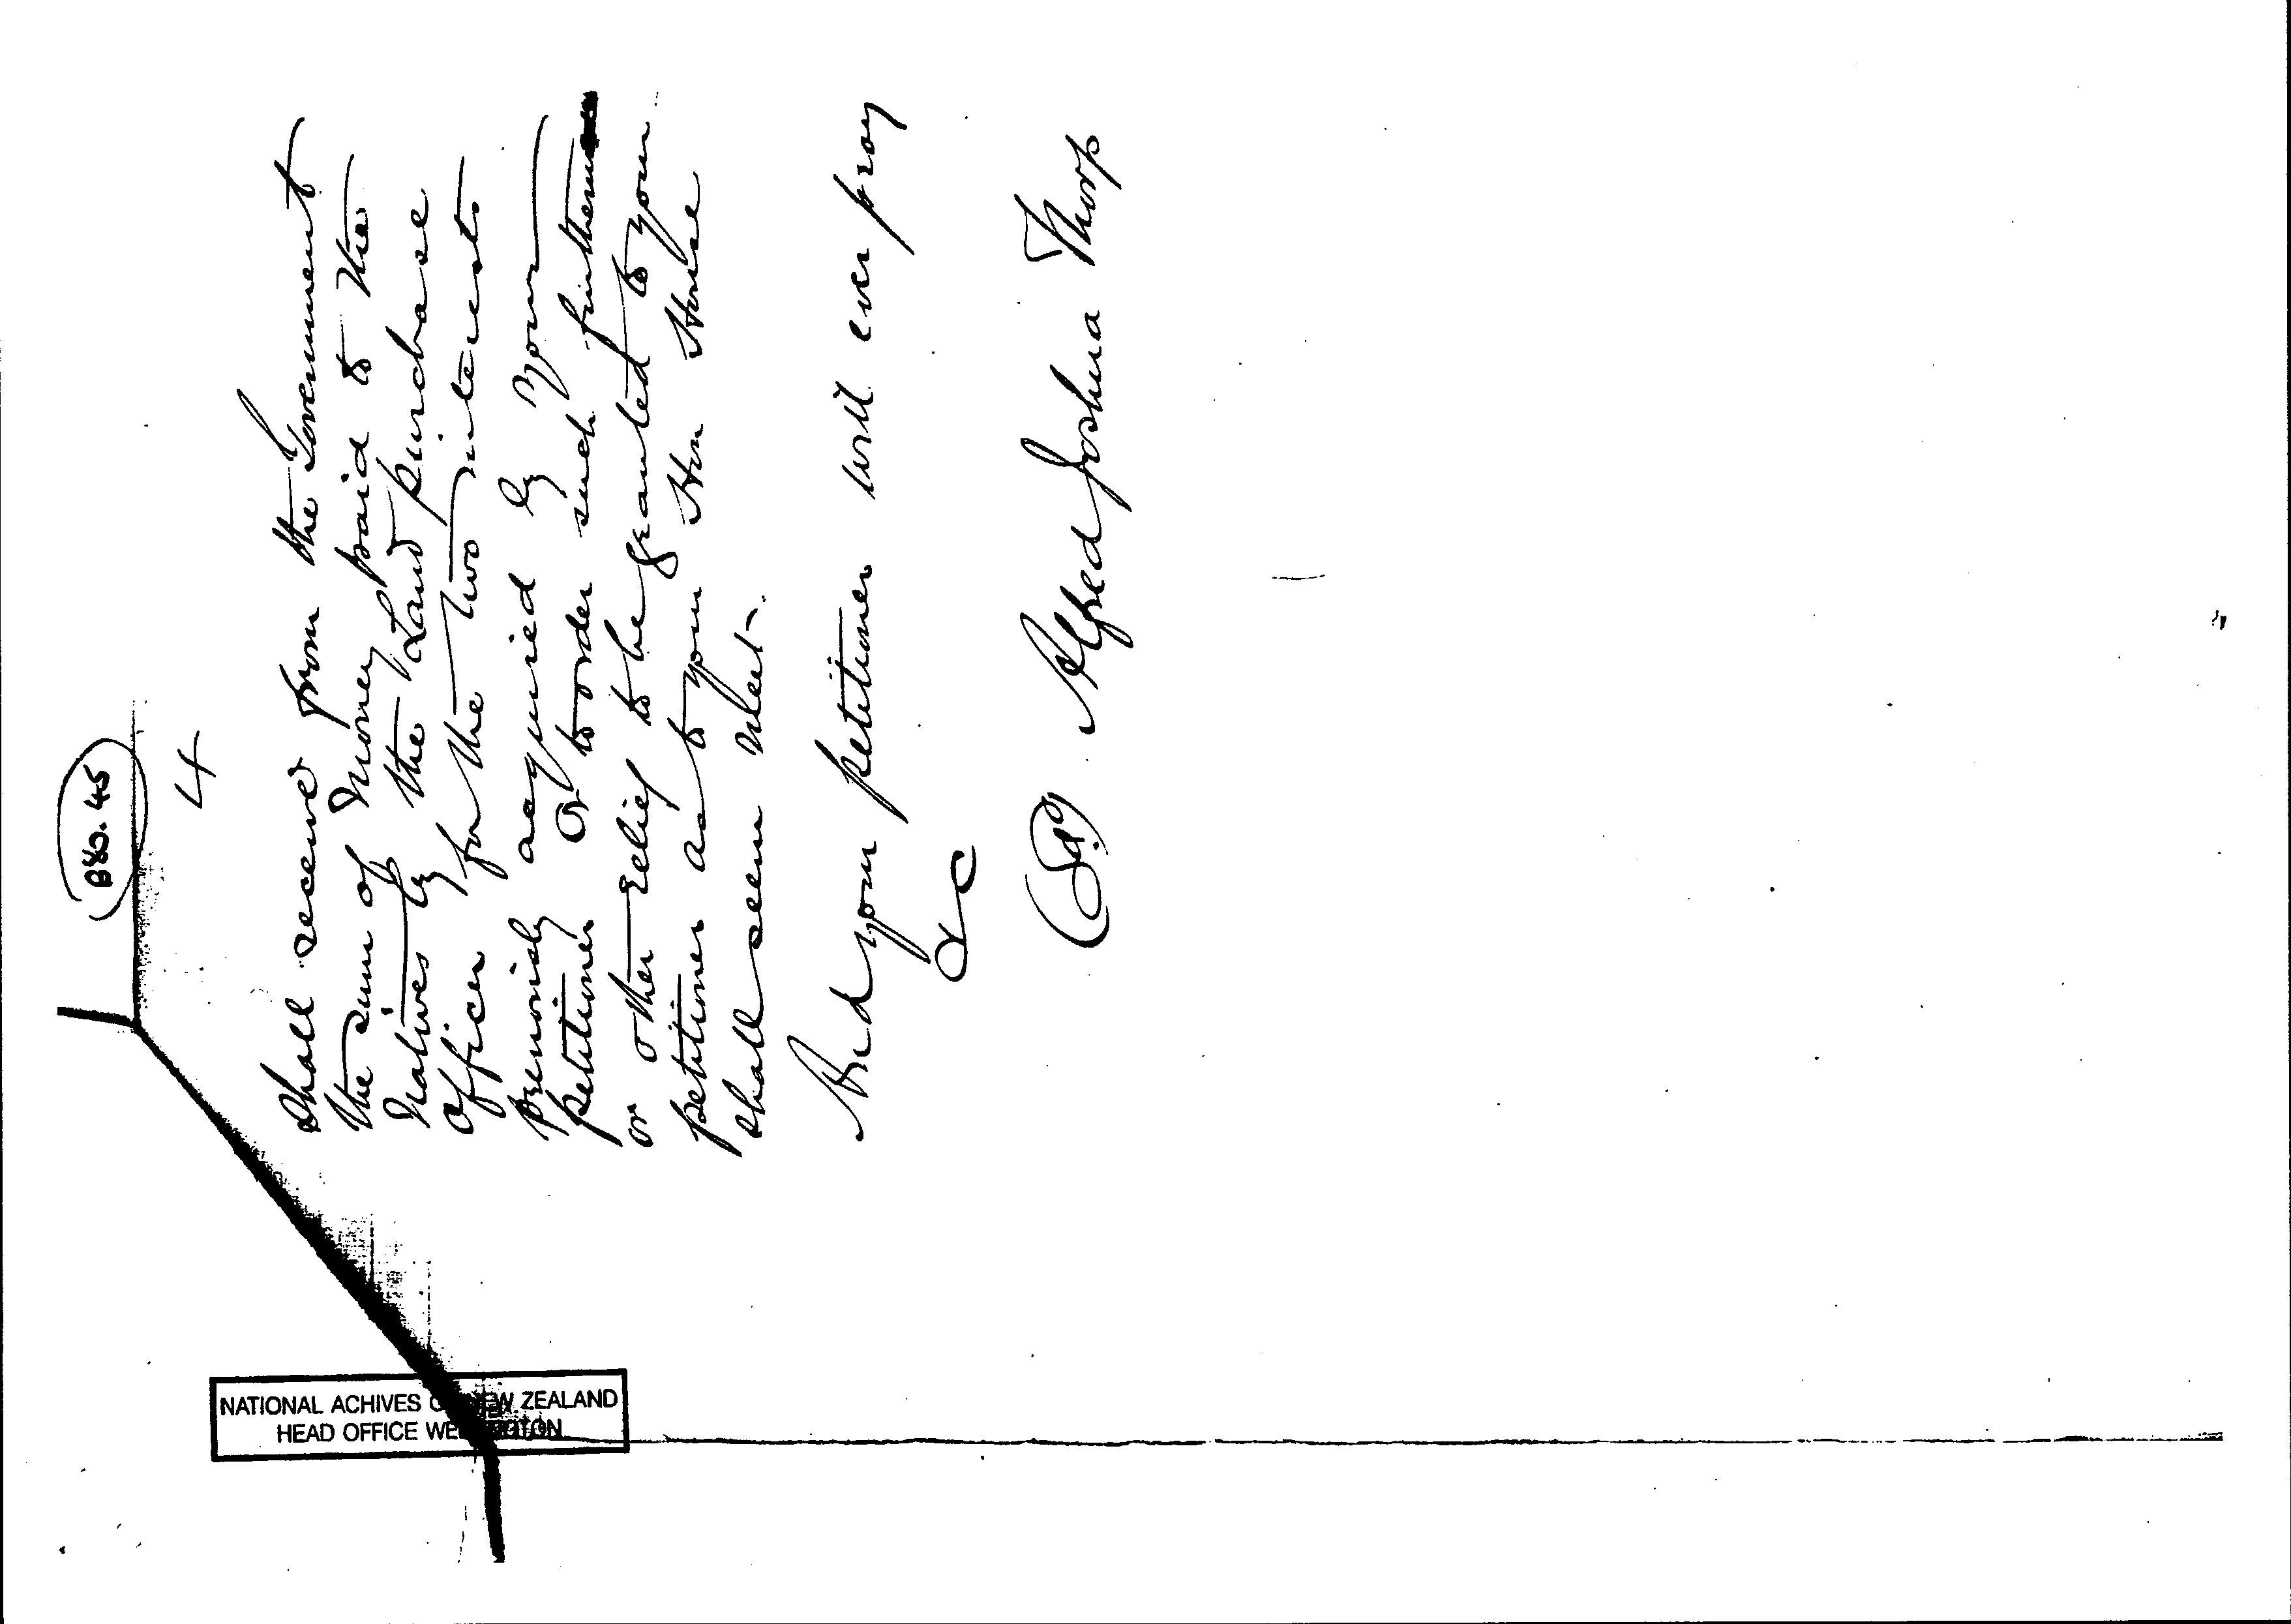 B80.45
4
shall receive from the Government
the sum of Money paid to the
Natives by the Land purchase
officer for the two interests
previously acquired by your
petitioner or to order such further
or other relief to be granted to your
petitioner as to your Hon House
shall seem Meet.
And your petitioner will ever pray
&c
(Sd) Alfred Joshua Thorp
NATIONAL ACHIVES OF NEW ZEALAND
HEAD OFFICE WELLINGTON